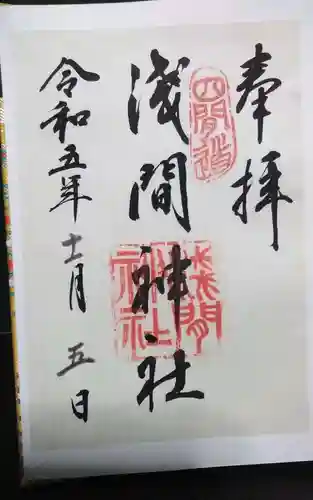 奉拝
四間道
浅間神社
浅間神社
令和五年十一月五日